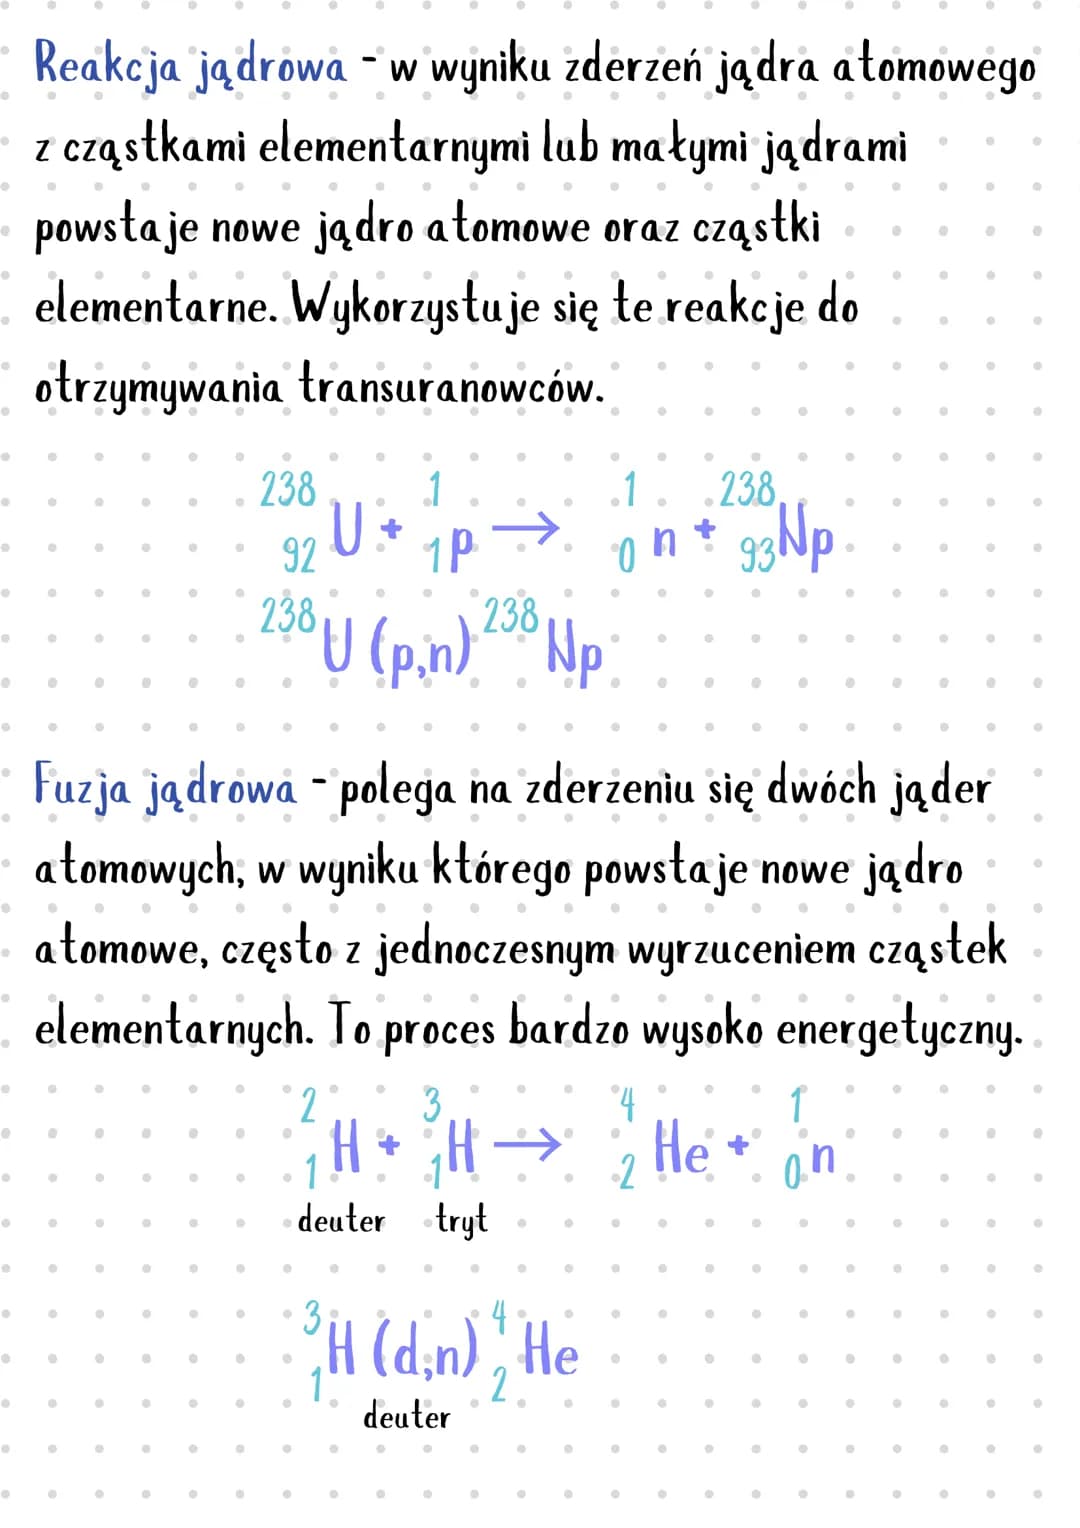 Reakcja jądrowa - w wyniku zderzeń jądra atomowego
z cząstkami elementarnymi lub małymi jądrami
powstaje nowe jądro atomowe oraz cząstki
elementarne. Wykorzystuje się te reakcje do
otrzymywania transuranowców.
²³⁸₉₂U + ¹₁p → ¹₀n + ²³⁸₉₃Np
²³⁸U (p,n) ²³⁸Np
Fuzja jądrowa - polega na zderzeniu się dwóch jąder
atomowych, w wyniku którego powstaje nowe jądro
atomowe, często z jednoczesnym wyrzuceniem cząstek
elementarnych. To proces bardzo wysoko energetyczny.
²₁H + ³₁H → ⁴₂He + ¹₀n
deuter tryt
³₁H (d,n) ⁴₂He
deuter